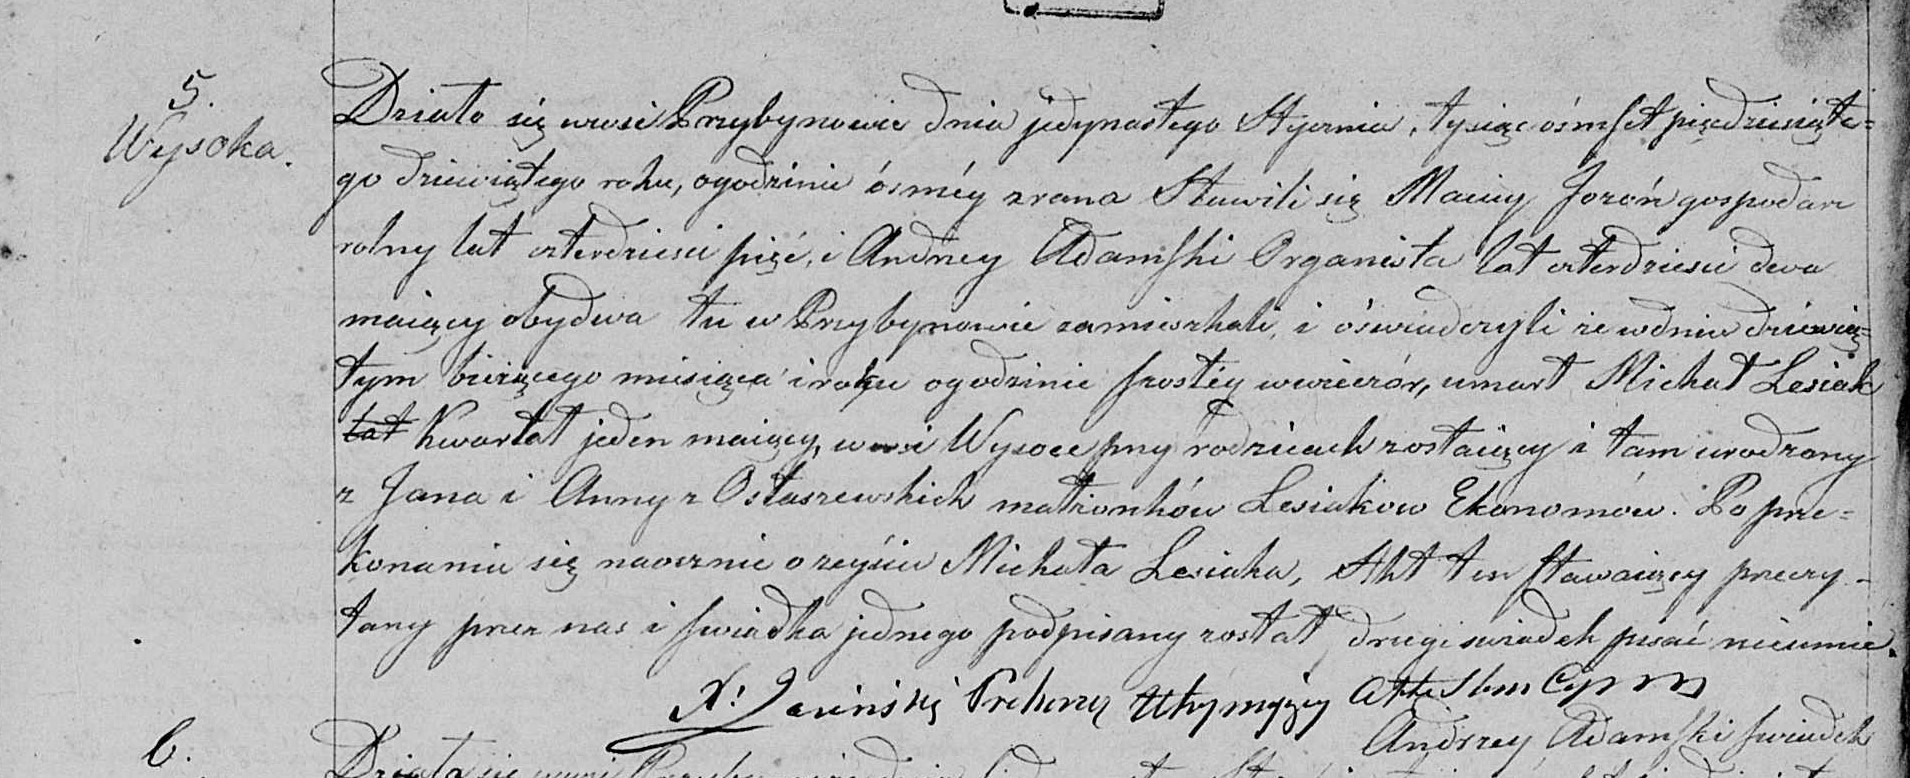 5.
Wysoka.
Działo się wewsi Przybynowie dnia jedynastego Stycznia, tysiąc ósmset pięcdziesiąte=
go dziewiątego roku, ogodzinie ósméy zrana Stawili się Maciey Jozoń gospodarz
rolny lat czterdziesci pięć, i Andrzey Adamski Organista lat czterdziesci dwa
maiący obydwa tu w Przybynowie zamieszkali, i óświadczyli że wdniu dziewią=
tym bieżącego miesiąca i roku ogodzinie szostéy wwieczór, umarł Michał Lesiak
lat Kwartał jeden maiący, wewsi Wysoce przy rodzicach zostaiący i tam urodzony
z Jana i Anny z Ostaszewskich małżonków Lesiakow Ekonomów. Po prze=
konaniu się naocznie o zeyściu Michała Lesiaka, Akt ten stawaiącey przeczy-
tany przez nas i swiadka jednego podpisany został, drugi swiadek pisać nieumie.
X: Jasiński Utrzymujący Akta Stanu
Andrzey Adamski swiadek
6.
Działo się wewsi